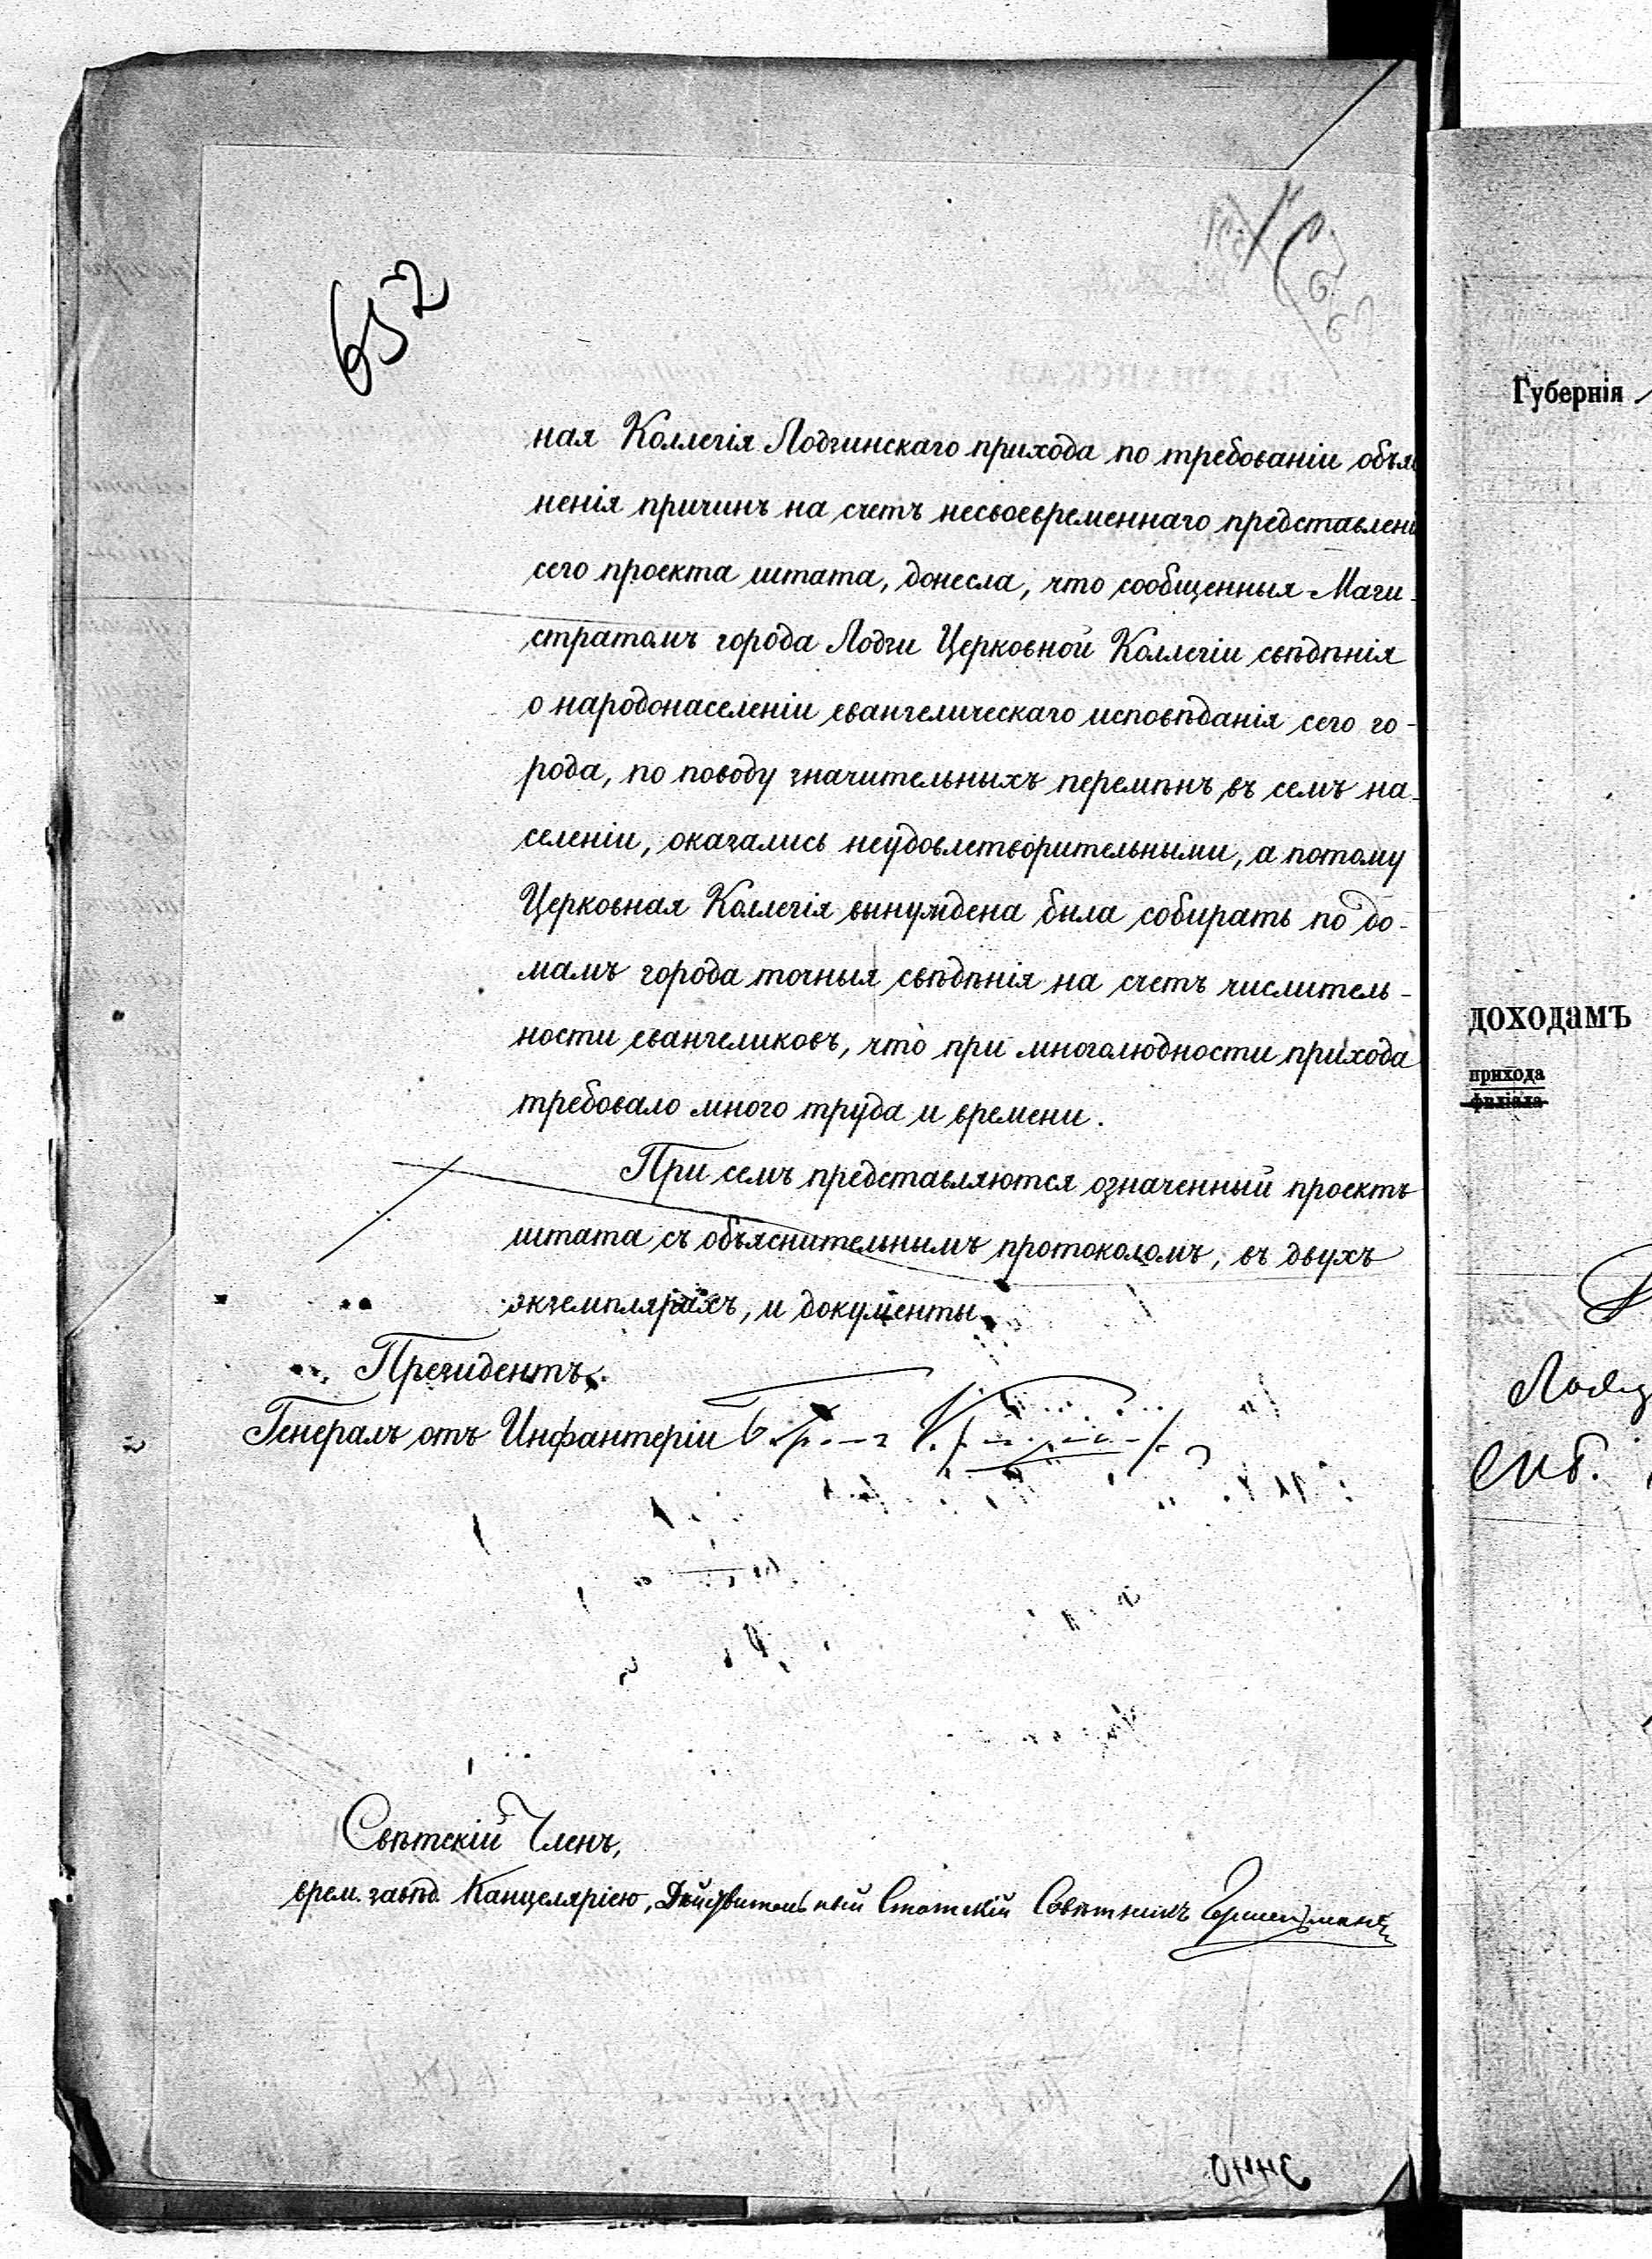 652
ная Коллегія Лодзинскаго прихода по требованіи объяс
ненія причинъ на счетъ несвоевременнаго представлені
сего проекта штата, донесла, что сообщенныя Маги-
стратомъ города Лодзи Церковной Коллегіи свѣдѣнія
о народонаселеніи евангелическаго исповѣданія сего го-
рода, по поводу значительныхъ перемѣнъ въ семъ на-
селеніи, оказались неудовлетворительными, а потому
Церковная Коллегія вынуждена была собирать по до-
мамъ города точныя свѣдѣнія на счетъ числитель-
ности евангеликовъ, что при многолюдности прихода
требовало много труда и времени.
При семъ представляются означенный проектъ
штата съ объяснительнымъ протоколомъ, въ двухъ
экземплярахъ, и документы.
Президентъ,
Генералъ отъ Инфантеріи
Свѣтскій Членъ,
врем. завѣд. Канцеляріею, Дѣйствительный Статскій Совѣтникъ
Губернія
доходамъ
прихода
филіала